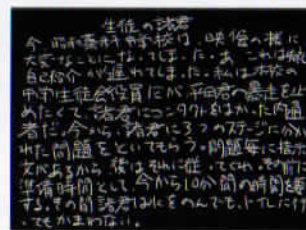 生徒の諸君
今、昭和 中学校は、映像の様に
大変なことになってしまった。あ、これは失礼
自己紹介が遅れてしまった。私は本校の
中学生徒会役員だが、平田君の暴走を止
めたくて、諸君にコンタクトをはかった内通
者だ。今から、諸君に3つのステージに分か
れた問題をといてもらう。問題毎に指示
文があるから、後はそれに従ってくれ。その前に
準備時間として、今から10分間の時間を
する。その間諸君は水をのんでも、トイレに行
ってもかまわない。